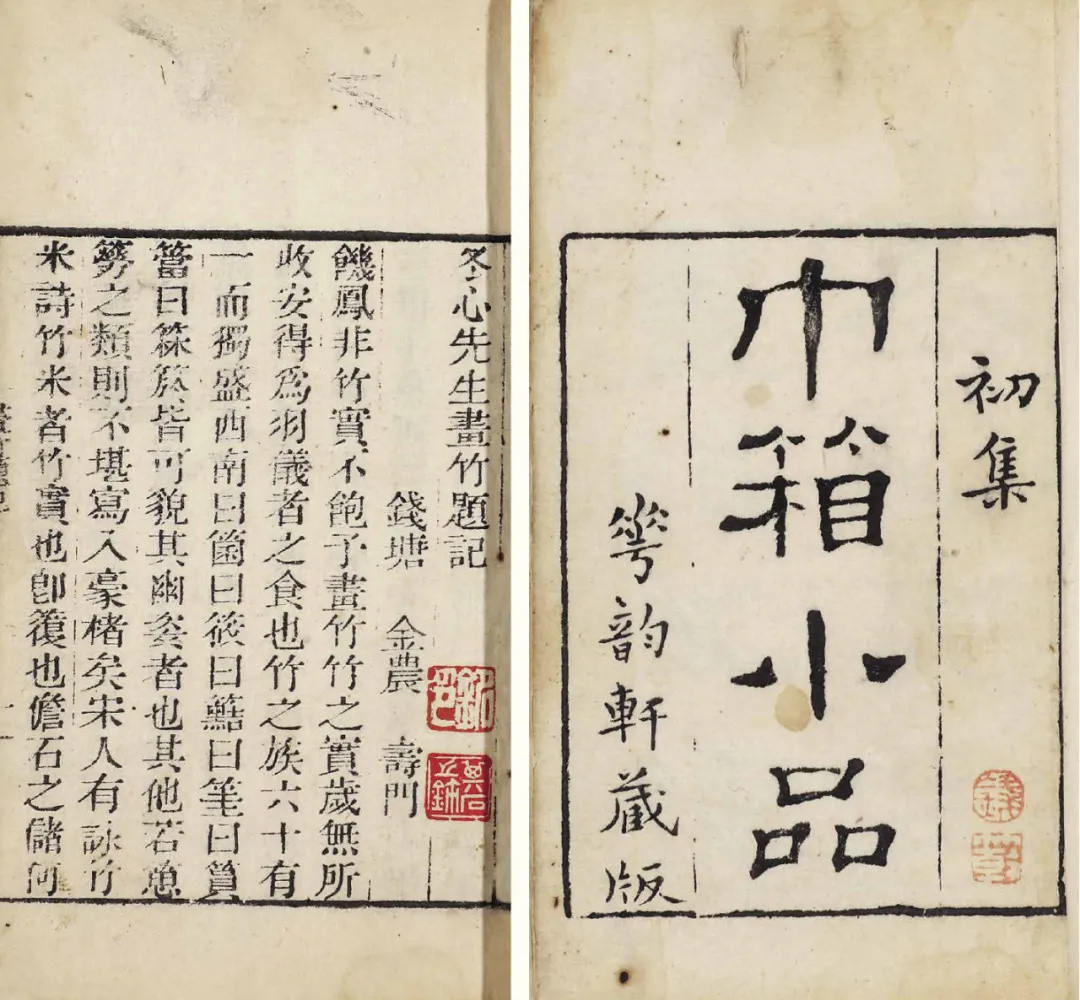 初集
巾箱小品
華韵軒藏版
冬心先生畫竹題記
錢塘 金農 壽門
饑鳳非竹實不飽予畫竹竹之實歲無所
收安得爲羽儀者之食也竹之族六十有
一而獨盛西南曰箇曰筱曰曰筀曰篔
簹曰箖箊皆可貌其幽姿者也其他若
簩之類則不堪寫入豪楮矣宋人有詠竹
米詩竹米者竹實也卽也儋石之儲何